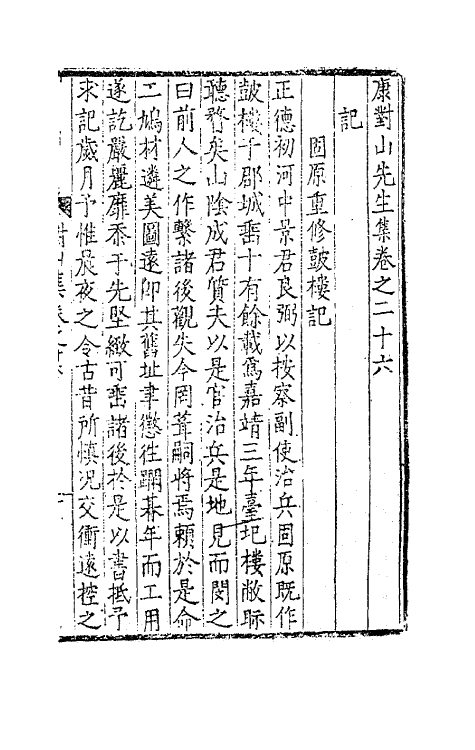 康對山先生集卷之二十六
記
固原重修鼓樓記
正德初河中景君良弼以按察副使治兵固原既作
鼓樓于郡城垂十有餘載爲嘉靖三年臺圮樓敝眎
聽瞀矣山陰成君質夫以是官治兵是地見而閔之
曰前人之作繫諸後觀失今罔葺嗣將焉賴於是命
工鳩材遴美圖遠仰其舊址聿懲徃蹋朞年而工用
遂訖嚴麗靡忝于先堅緻可垂諸後於是以書抵予
求記歲月予惟晨夜之令古昔所慎况交衝遠控之